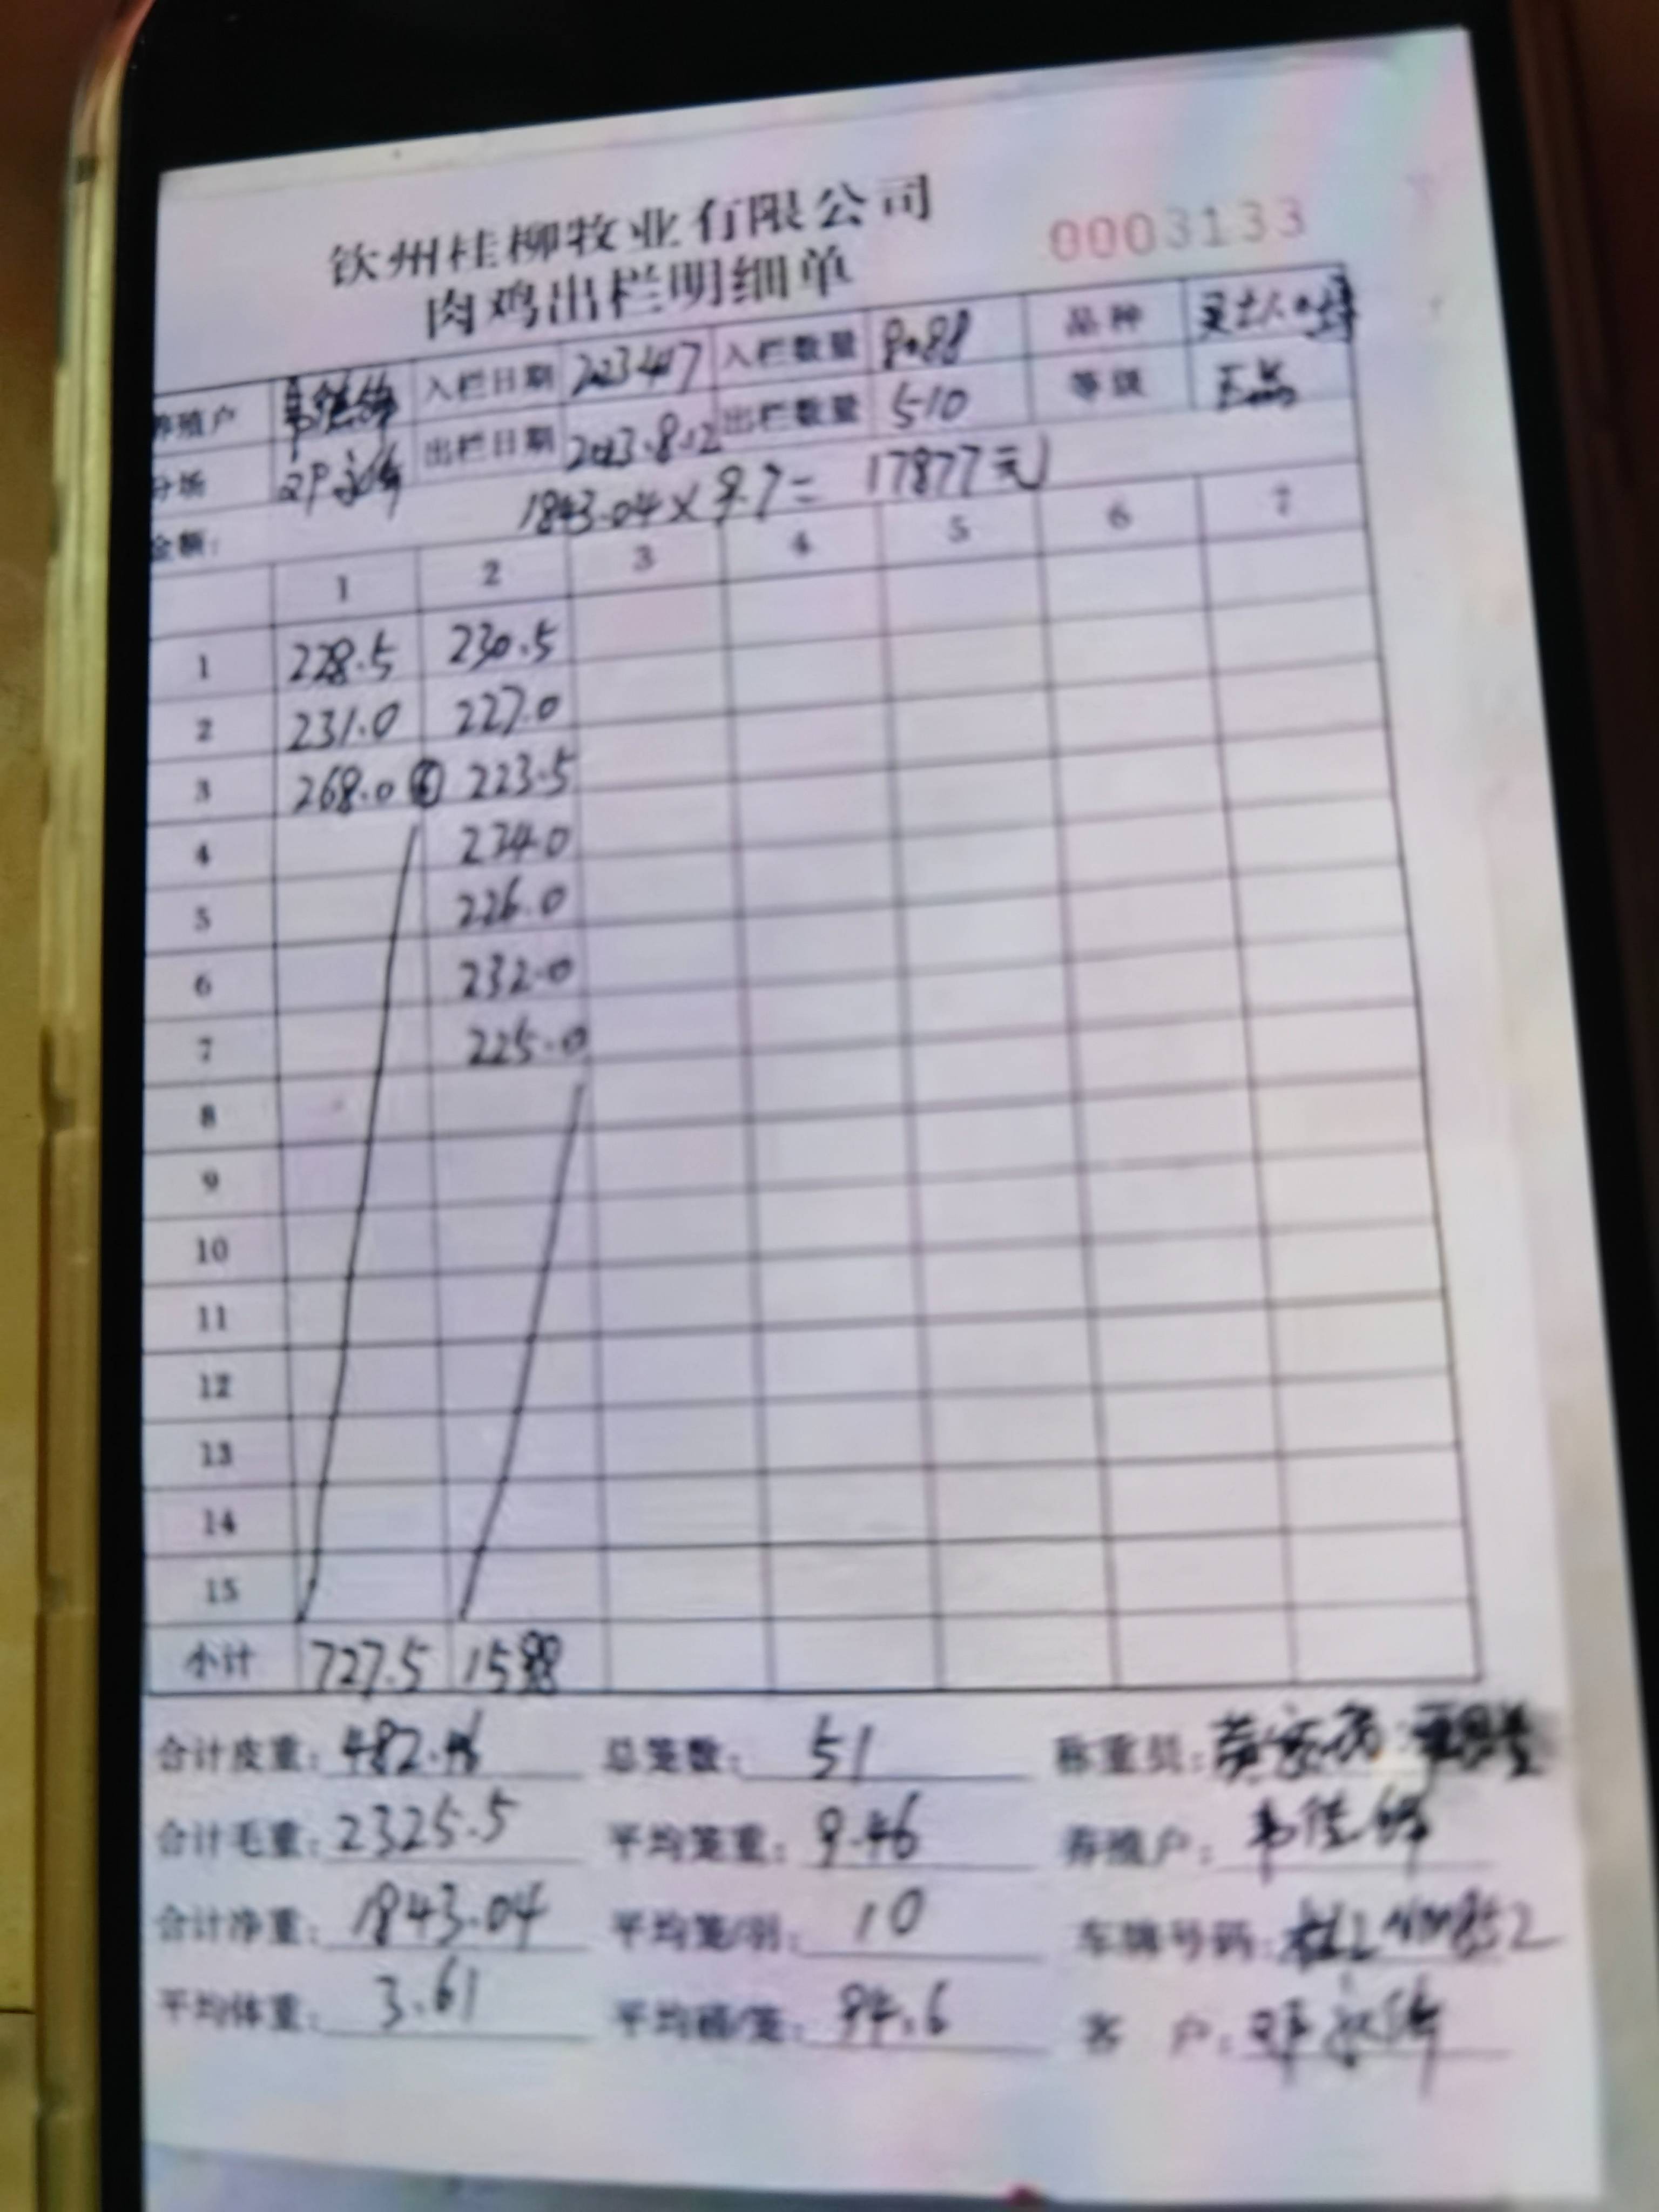 钦州桂柳牧业有限公司
肉鸡出栏明细单 0003133
养殖户 入栏日期 2023.4.17 入栏数量 8088 品种
分场 出栏日期 2023.8.12 出栏数量 510 等级 正品
金额: 1843.04×9.7= 17877元
1 2 3 4 5 6 7
1 228.5 230.5
2 231.0 227.0
3 268.0 223.5
4 224.0
5 226.0
6 232.0
7 225.0
8
9
10
11
12
13
14
15
小计 727.5 1588
合计皮重: 482.46 总笼数: 51 称重员:
合计毛重: 2325.5 平均笼重: 9.46 养殖户:
合计净重: 1843.04 平均笼/羽: 10 车牌号码:
平均体重: 3.61 平均桶/笼: 94.6 客 户: